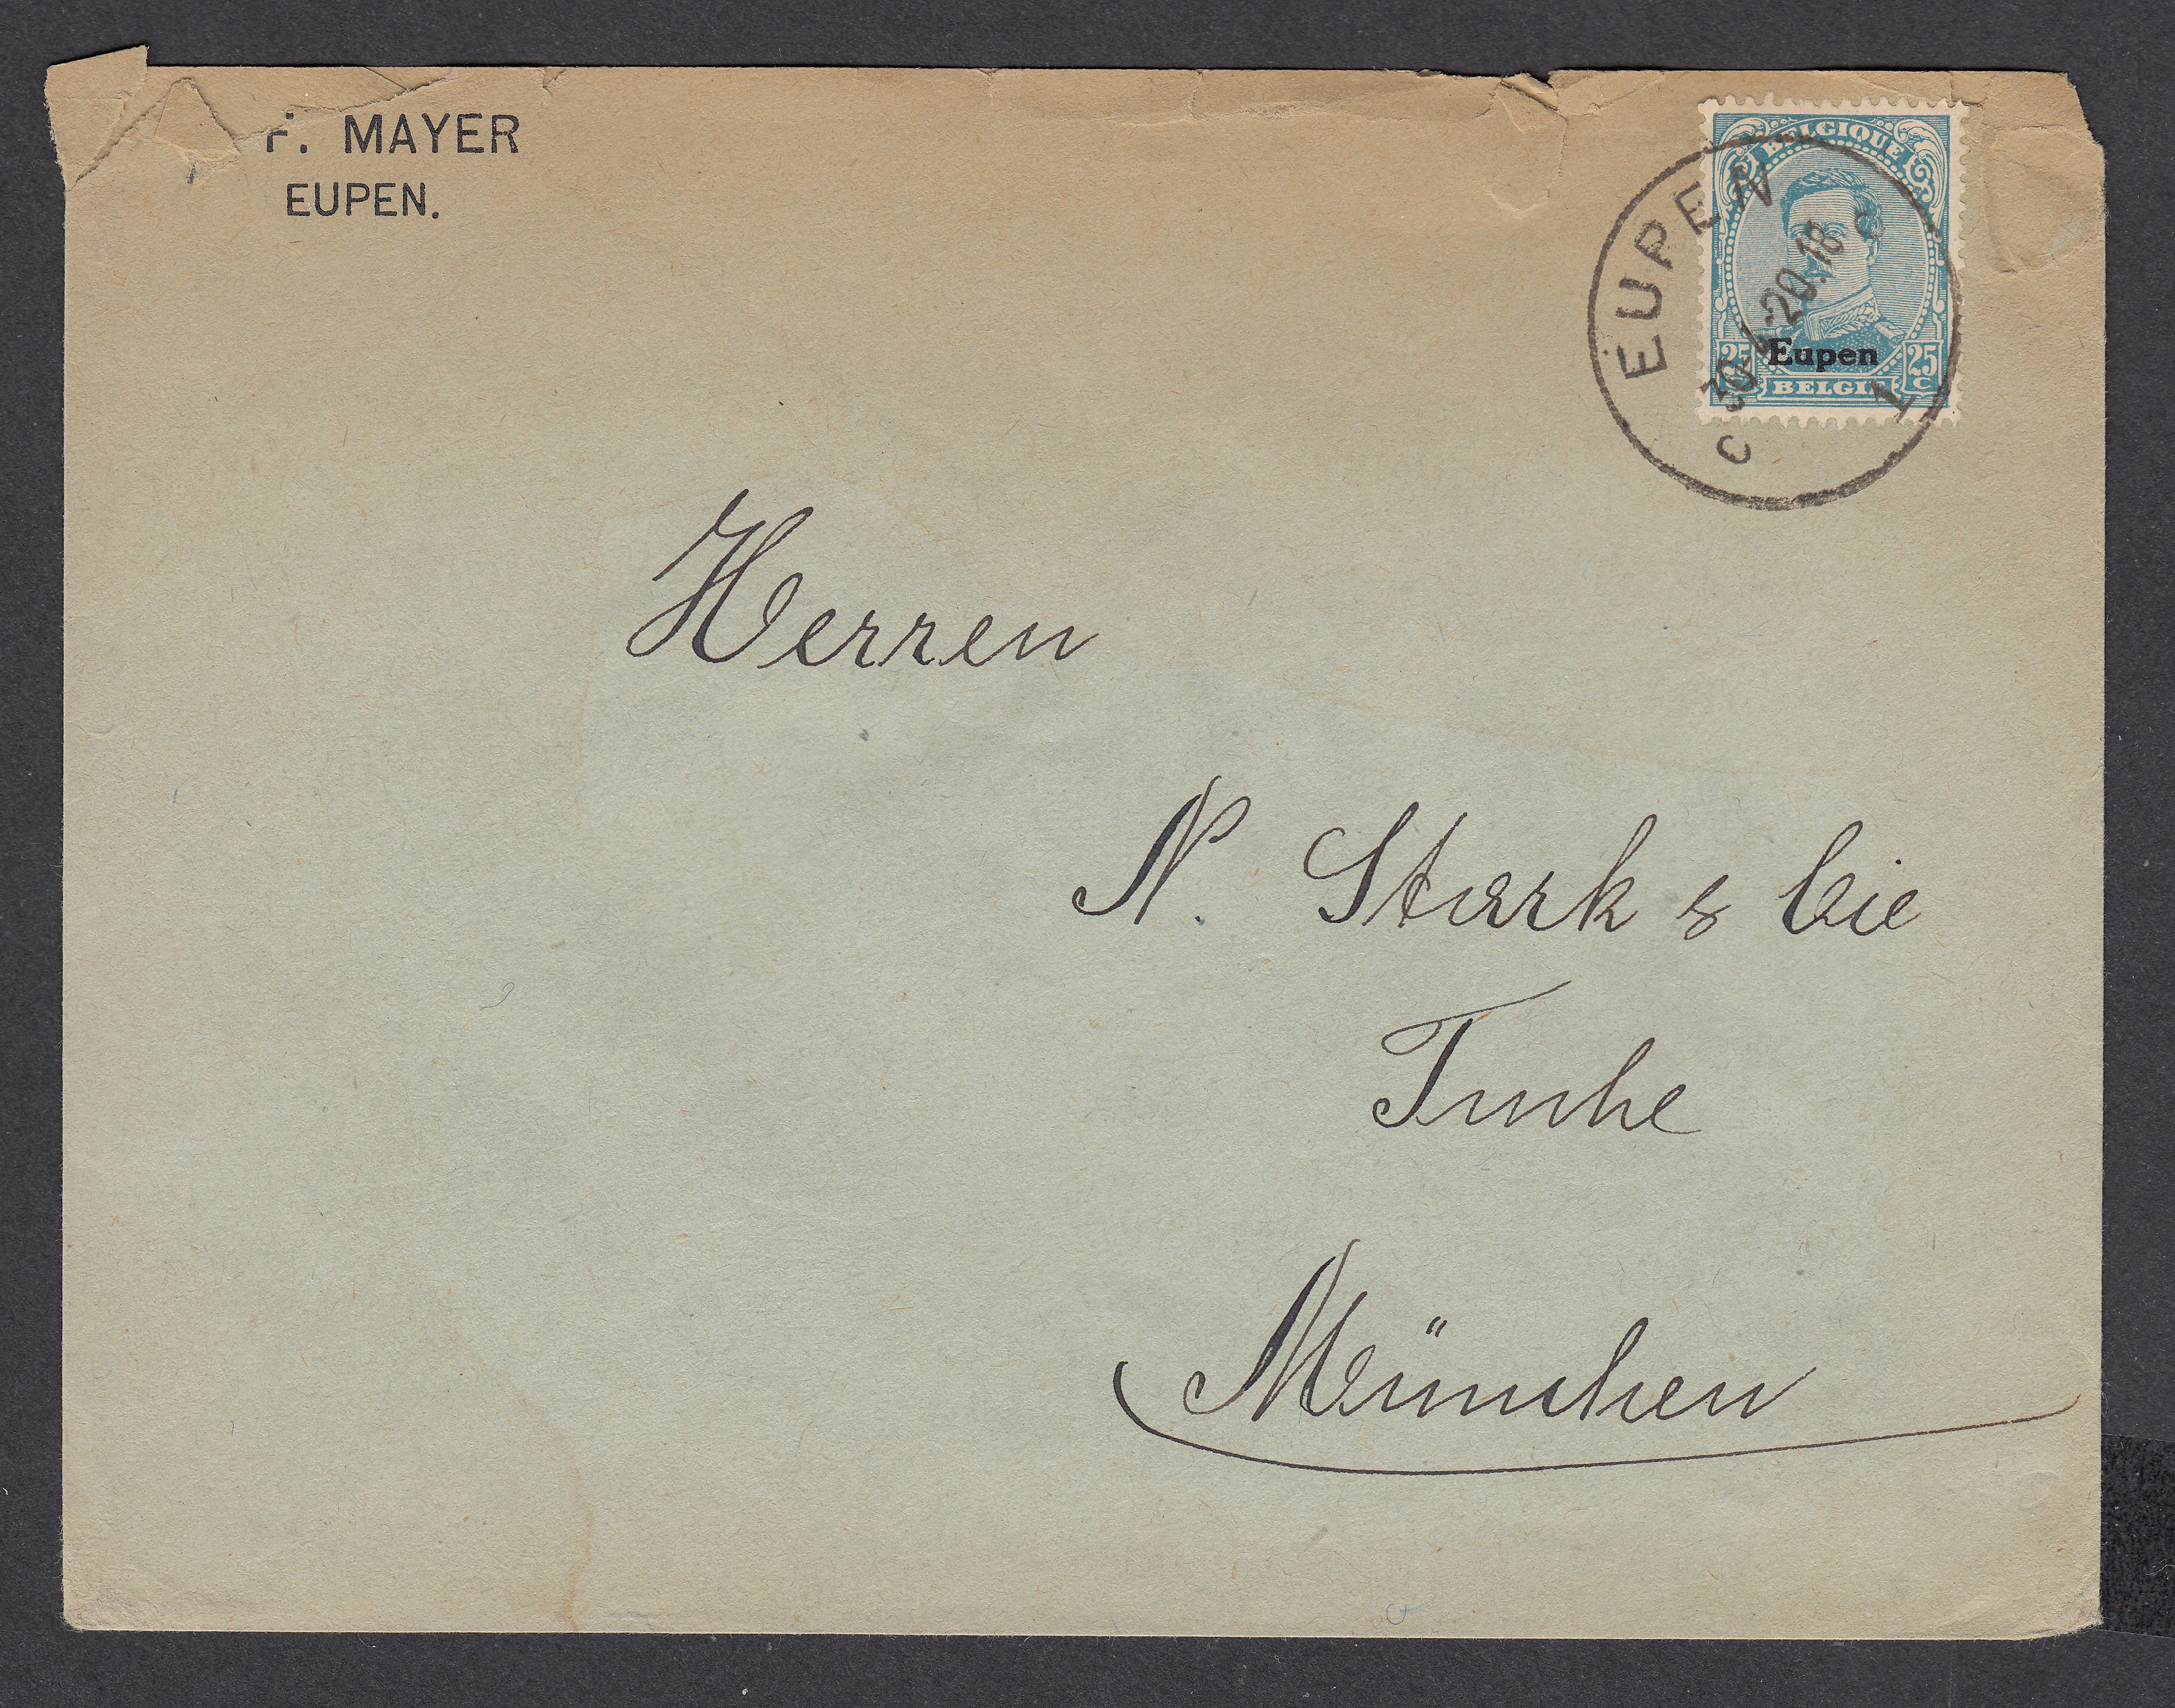 F. MAYER
EUPEN.
BELGIQUE
EUPEN
20.18
Eupen
25 25
C
BELGIE
1
c
Herren
N. Stark & Cie
Tuche
München